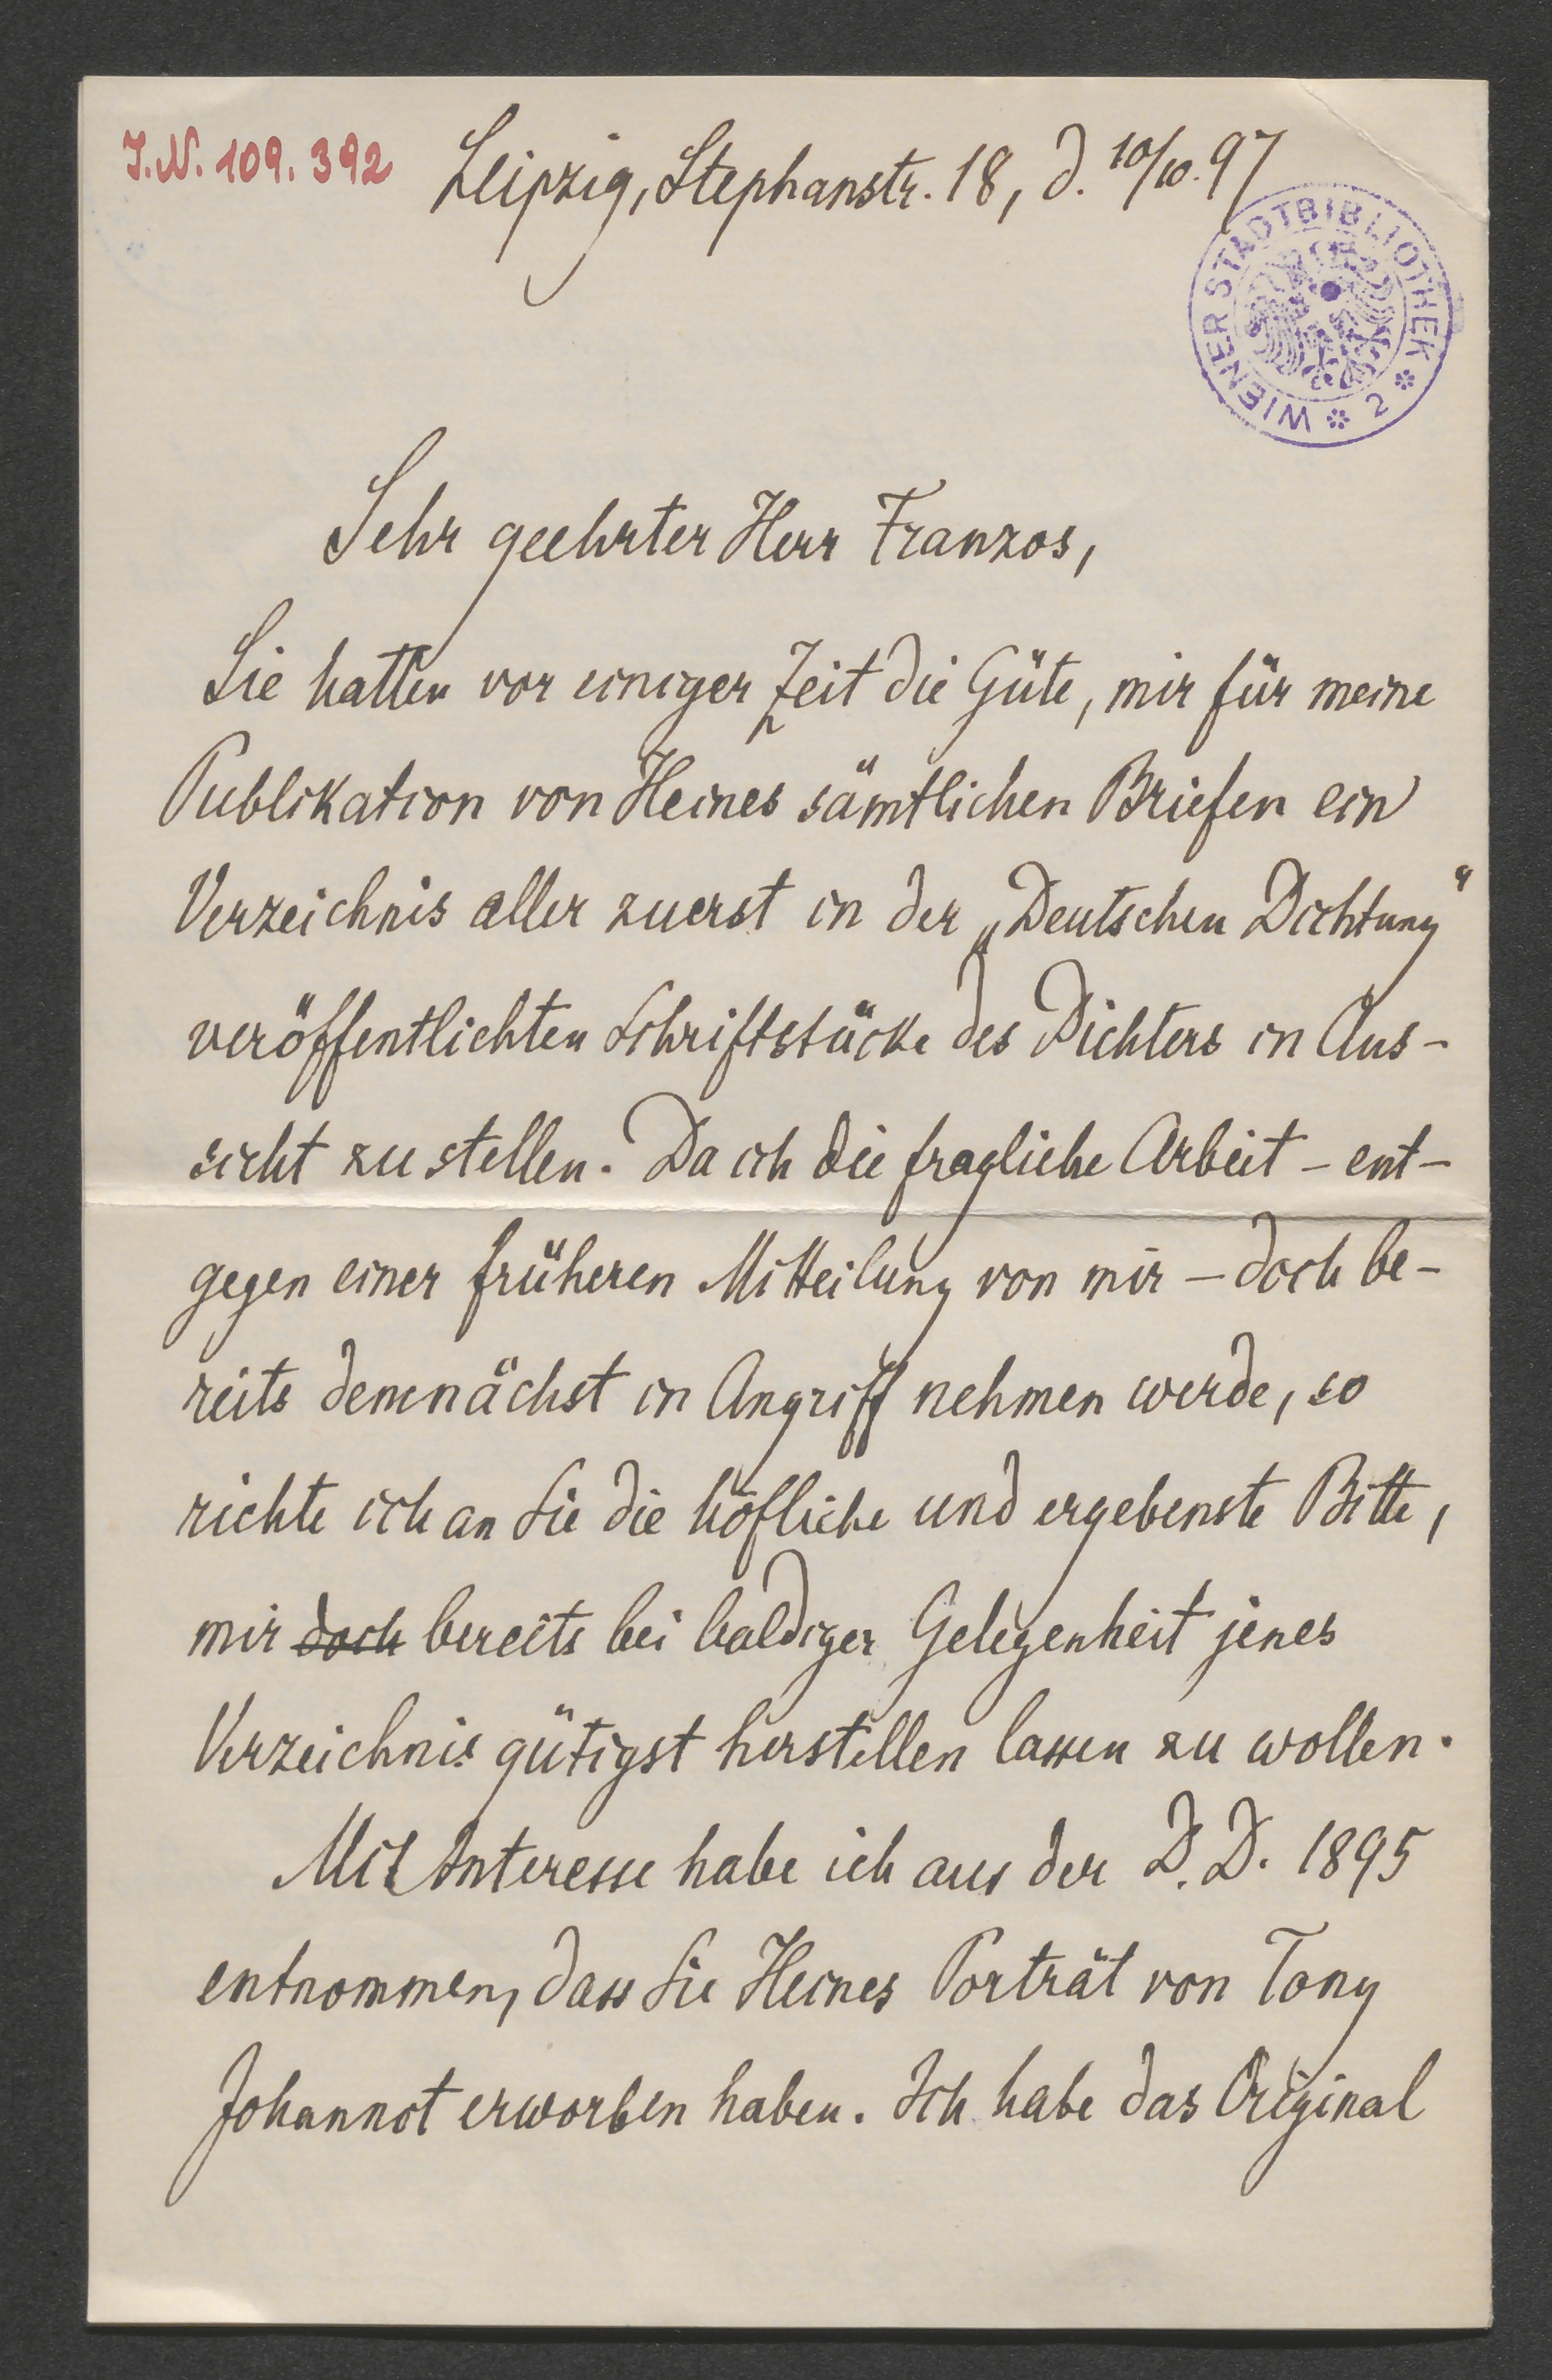 J.N. 109.392
Leipzig, Stephanstr. 18, d. 10/10. 97
WIENER STADTBIBLIOTHEK * 2 *
Sehr geehrter Herr Franzos,
Sie hatten vor einiger Zeit die Güte, mir für meine
Publikation von Heines sämtlichen Briefen ein
Verzeichnis aller zuerst in der „Deutschen Dichtung“
veröffentlichten Schriftstücke des Dichters in Aus-
sicht zu stellen. Da ich die fragliche Arbeit – ent-
gegen einer früheren Mitteilung von mir – doch be-
reits demnächst in Angriff nehmen werde, so
richte ich an Sie die höfliche und ergebenste Bitte,
mir doch bereits bei baldiger Gelegenheit jenes
Verzeichnis gütigst herstellen lassen zu wollen.
Mit Interesse habe ich aus der D. D. 1895
entnommen, dass Sie Heines Porträt von Tony
Johannot erworben haben. Ich habe das Original